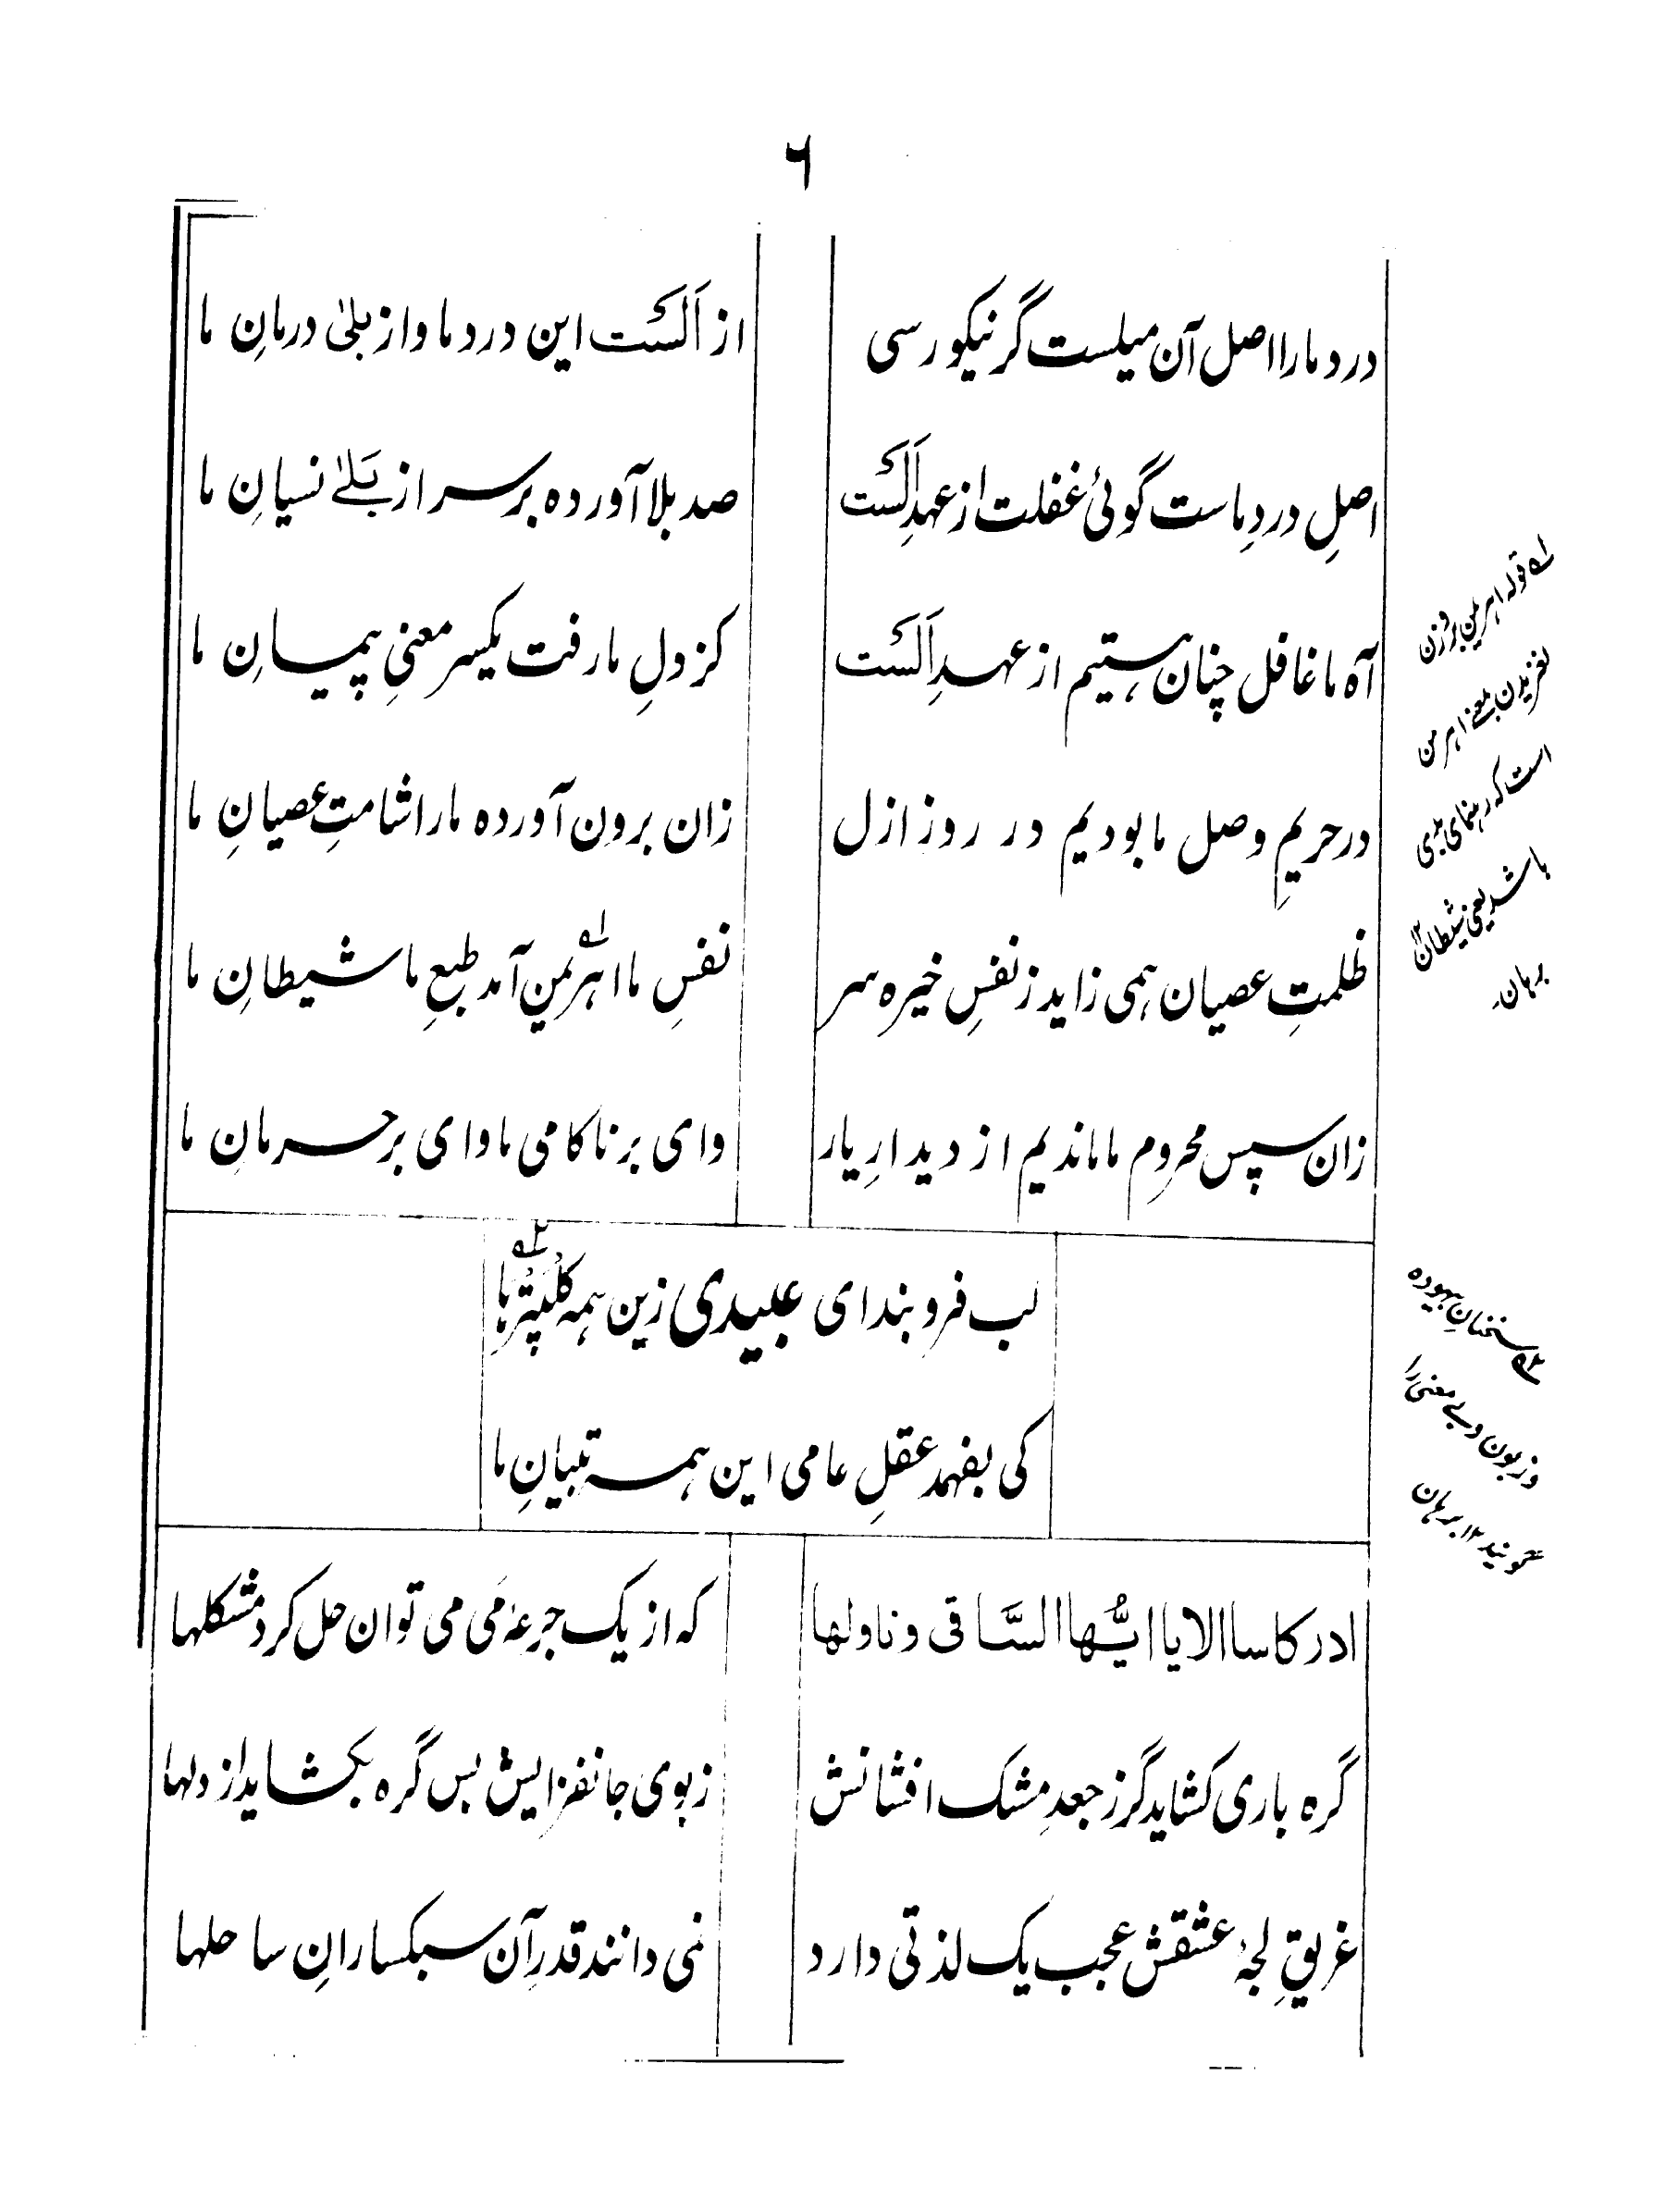 ۶
درد مارا اصل آن میلست گر نیکو رسی
از اَلَست این درد ما و از بلیٰ درمانِ ما
اصلِ دردِ ماست گوئی غفلت از عهدِ اَلَست
صد بلا آورده بر سر از بَلےٰ نسیانِ ما
آه ما غافل چنان هستیم از عهدِ اَلَست
کز دلِ ما رفت یکسر معنیِ پیمانِ ما
در حریمِ وصل ما بودیم در روز ازل
زان برون آورده مارا شامتِ عصیانِ ما
ظلمتِ عصیان همی زاید ز نفسِ خیره سر
نفسِ ما اهرَیمنِ آمد طبعِ ما شیطانِ ما
زان سپس محروم ما ماندیم از دیدارِ یار
وای بر ناکامی ما وای بر حرمانِ ما
لب فرو بند ای عبیدی زین همه کَلپَترِها
کی بفهمد عقلِ عامی این همه تبیانِ ما
ادر کاسا الا یا ایُّها السَّاقی و ناولها
که از یک جرعهٔ مَی می توان حل کرد مشکلها
گره باری کشاید گر ز جعدِ مشک افشانش
ز بوی جانفزایش بس گره بکشاید از دلها
غریقِ لجهٔ عشقش عجب یک لذتی دارد
نمی دانند قدرِ آن سبکسارانِ ساحلها
له قوله اهریمن بروزن
نغزیدن بمعنے اهرمن
است که رهنمای بدی
باشد یعنی شیطان ۱۲
برهان
سخنانِ بیهوده
و زبون و بے معنی را
گویند ۱۲ برهان